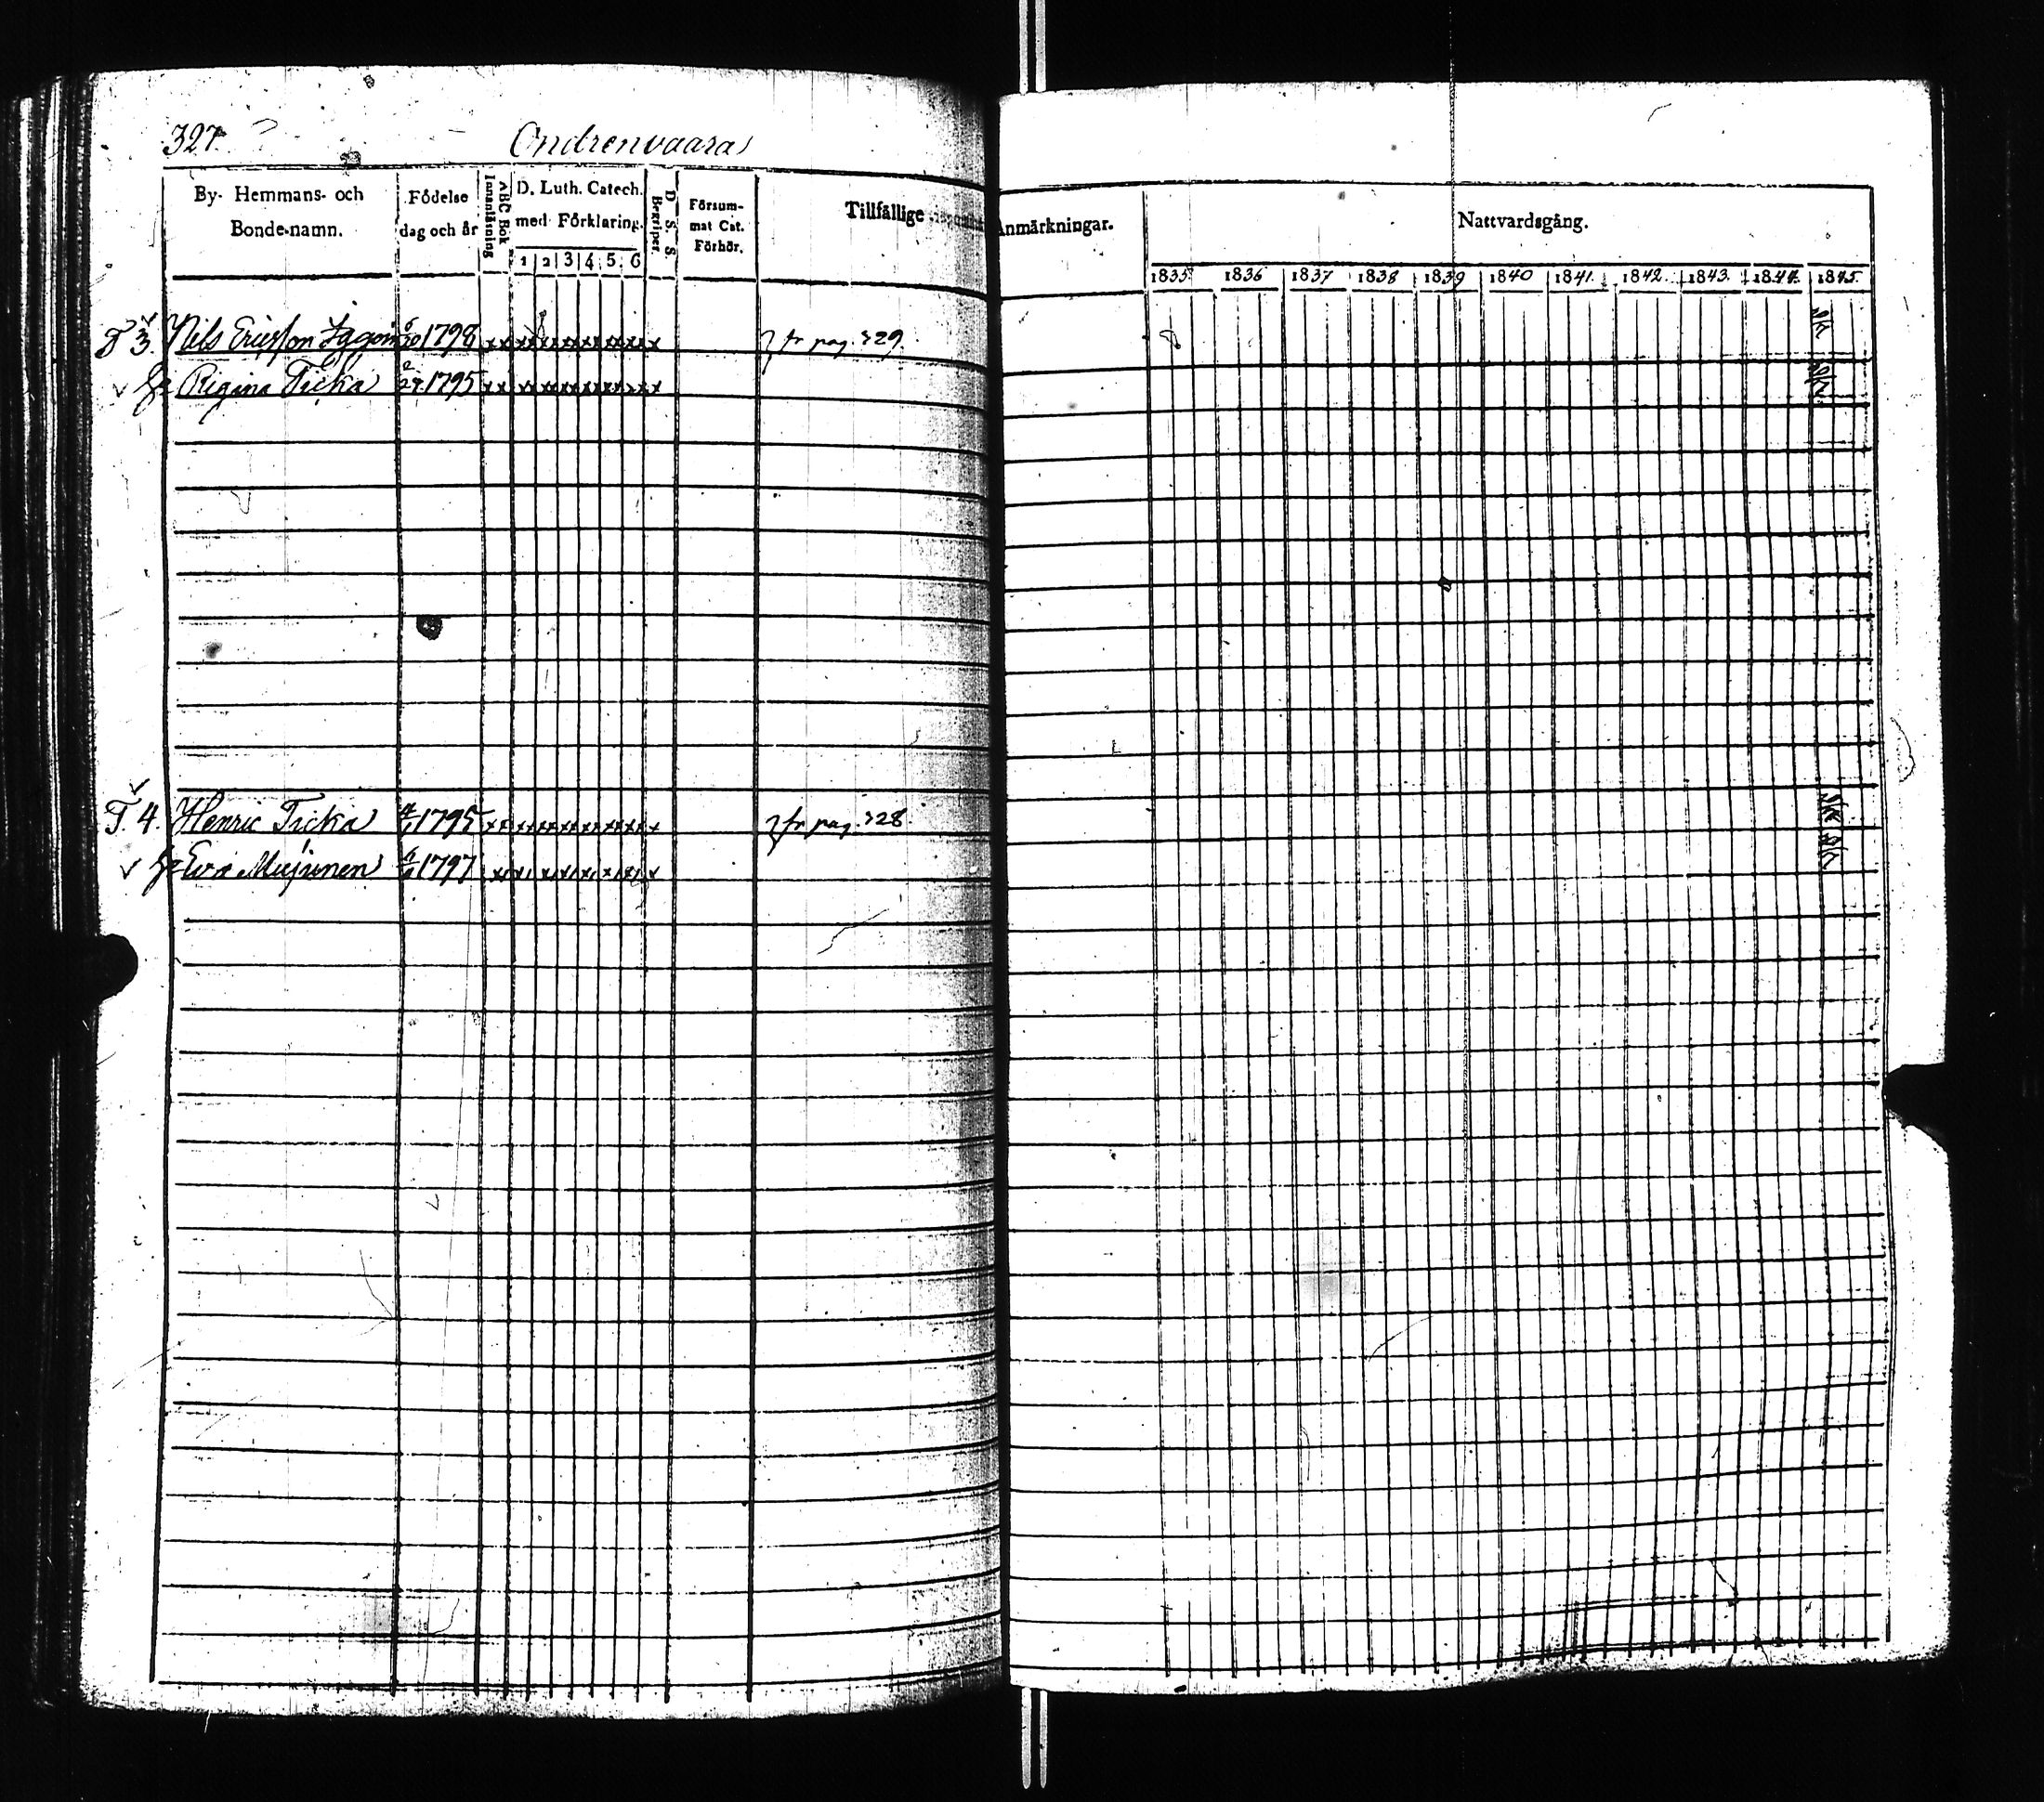 327. Ondrenvaara
By- Hemmans- och Bonde-namn.
Födelse dag och år
ABC Bok
Innanläsning
D. Luth. Catech. med Förklaring.
1 2 3 4 5 6
D. S. S.
Begriper.
Försum-mat Cat. Förhör.
Tillfällige Anmärkningar.
Nattvardsgång.
1835. 1836 1837 1838 1839 1840 1841. 1842. 1843. 1844. 1845.
T 3. Nils Ericsson 1798 fr pag. 329.
Regina Ticka 2/27 1795
T. 4. Henric Ticka 1795 fr pag. 328
Eva Mujunen 1797